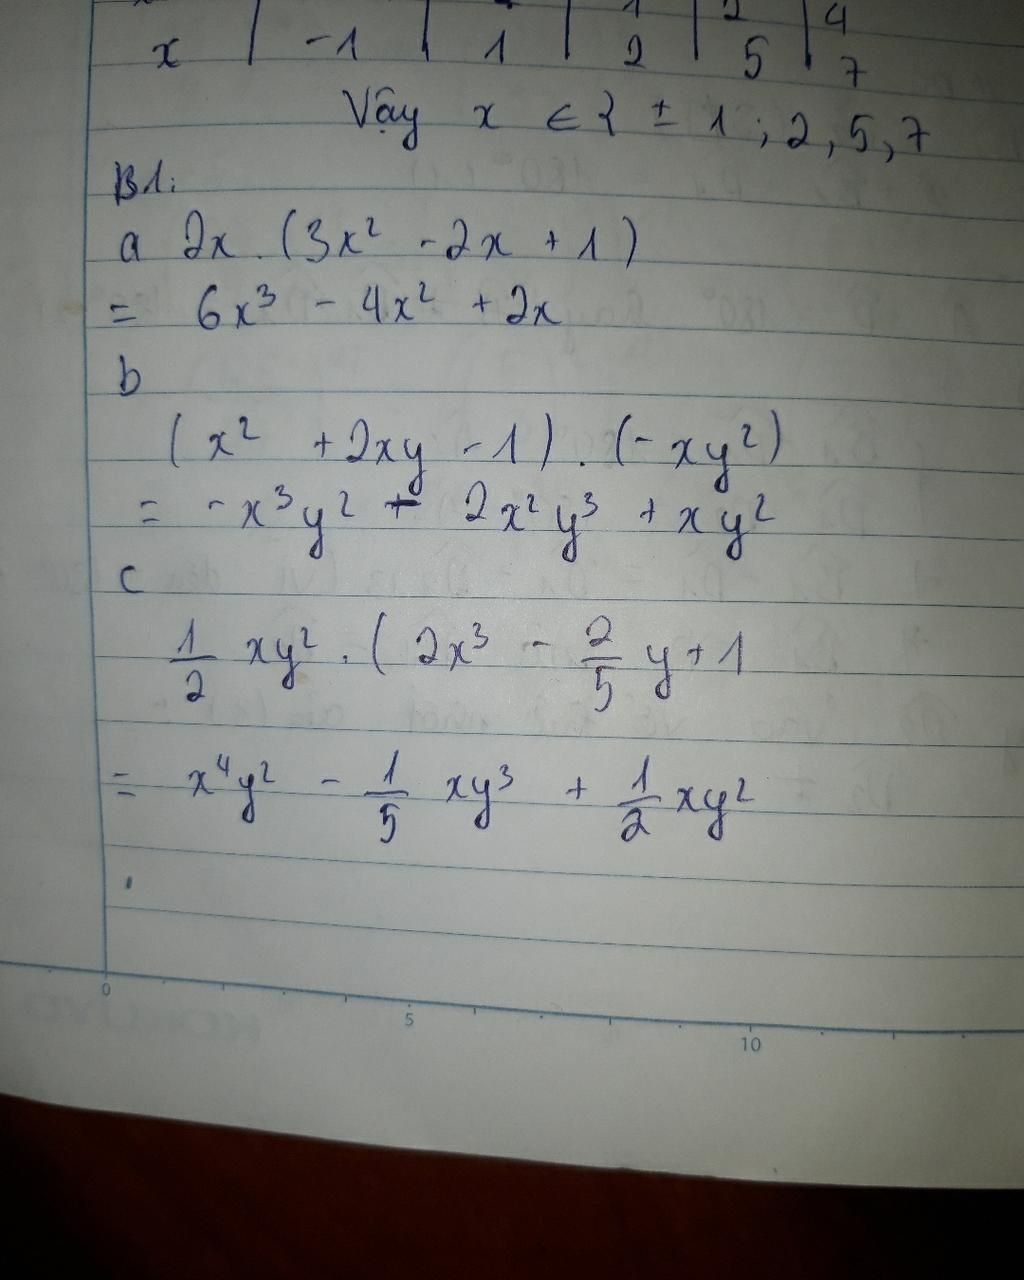 x | -1 | 1 | 2 | 5 | 7
Vậy x ∈ { ± 1 ; 2, 5, 7
B1:
a 2x . (3x² - 2x + 1)
= 6x³ - 4x² + 2x
b
(x² + 2xy - 1) . (- xy²)
= - x³y² - 2x²y³ + xy²
c
1/2 xy² . ( 2x³ - 2/5 y + 1
= x⁴y² - 1/5 xy³ + 1/2 xy²
0 5 10